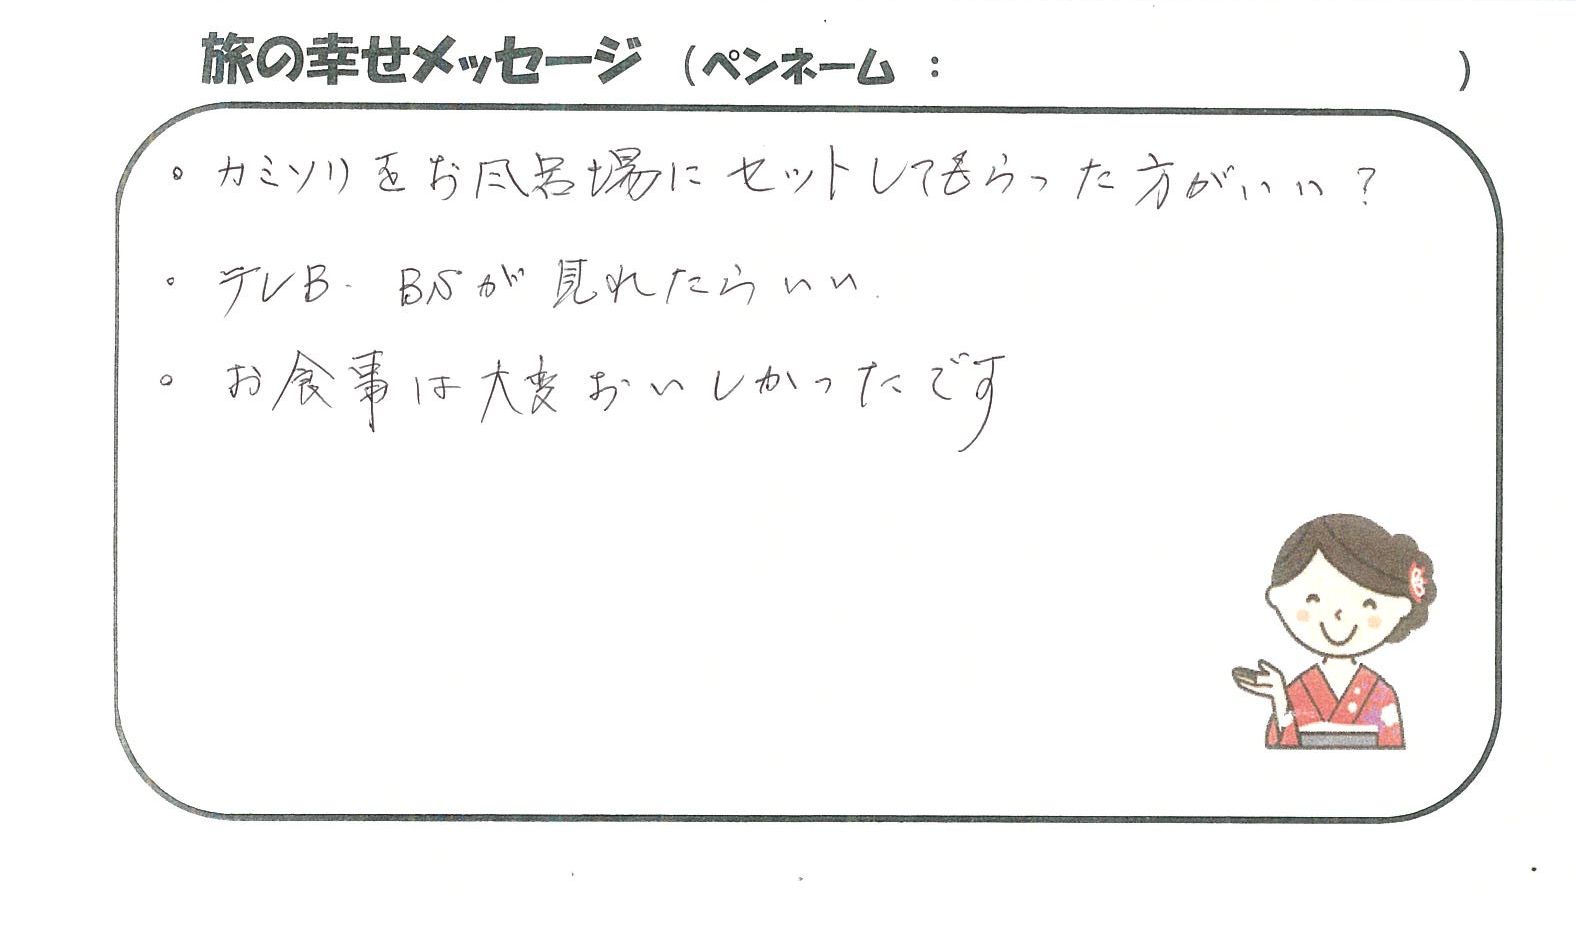 旅の幸せメッセージ （ペンネーム ： ）
。カミソリをお風呂場にセットしてもらった方がいい？
。テレB. BSが見れたらいい.
。お食事は大変おいしかったです